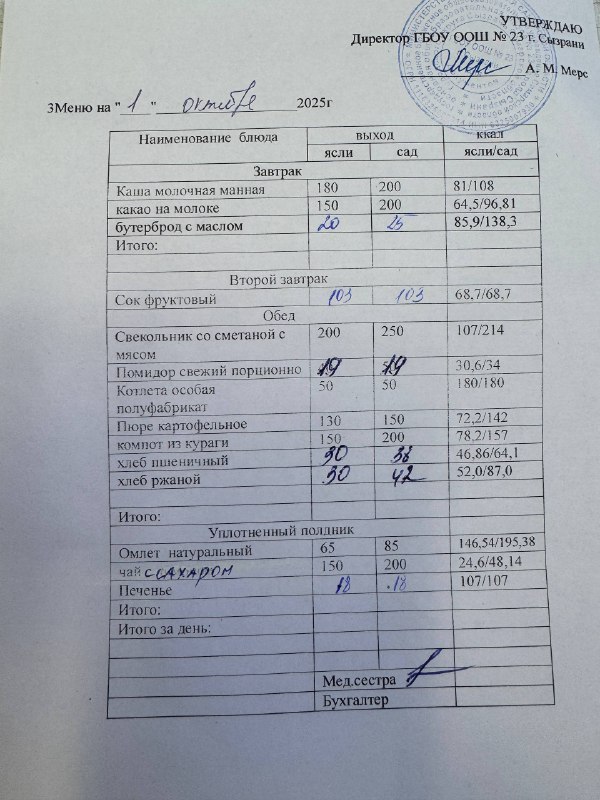 УТВЕРЖДАЮ
Директор ГБОУ ООШ № 23 г. Сызрани
А. М. Мерс
3Меню на "1" октября 2025г
Наименование блюда выход ккал
ясли сад ясли/сад
Завтрак
Каша молочная манная 180 200 81/108
какао на молоке 150 200 64,5/96,81
бутерброд с маслом 20 25 85,9/138,3
Итого:
Второй завтрак
Сок фруктовый 103 103 68,7/68,7
Обед
Свекольник со сметаной с 200 250 107/214
мясом
Помидор свежий порционно 19 19 30,6/34
Котлета особая 50 50 180/180
полуфабрикат
Пюре картофельное 130 150 72,2/142
компот из кураги 150 200 78,2/157
хлеб пшеничный 30 38 46,86/64,1
хлеб ржаной 30 42 52,0/87,0
Итого:
Уплотненный полдник
Омлет натуральный 65 85 146,54/195,38
чай с сахаром 150 200 24,6/48,14
Печенье 18 18 107/107
Итого:
Итого за день:
Мед.сестра
Бухгалтер